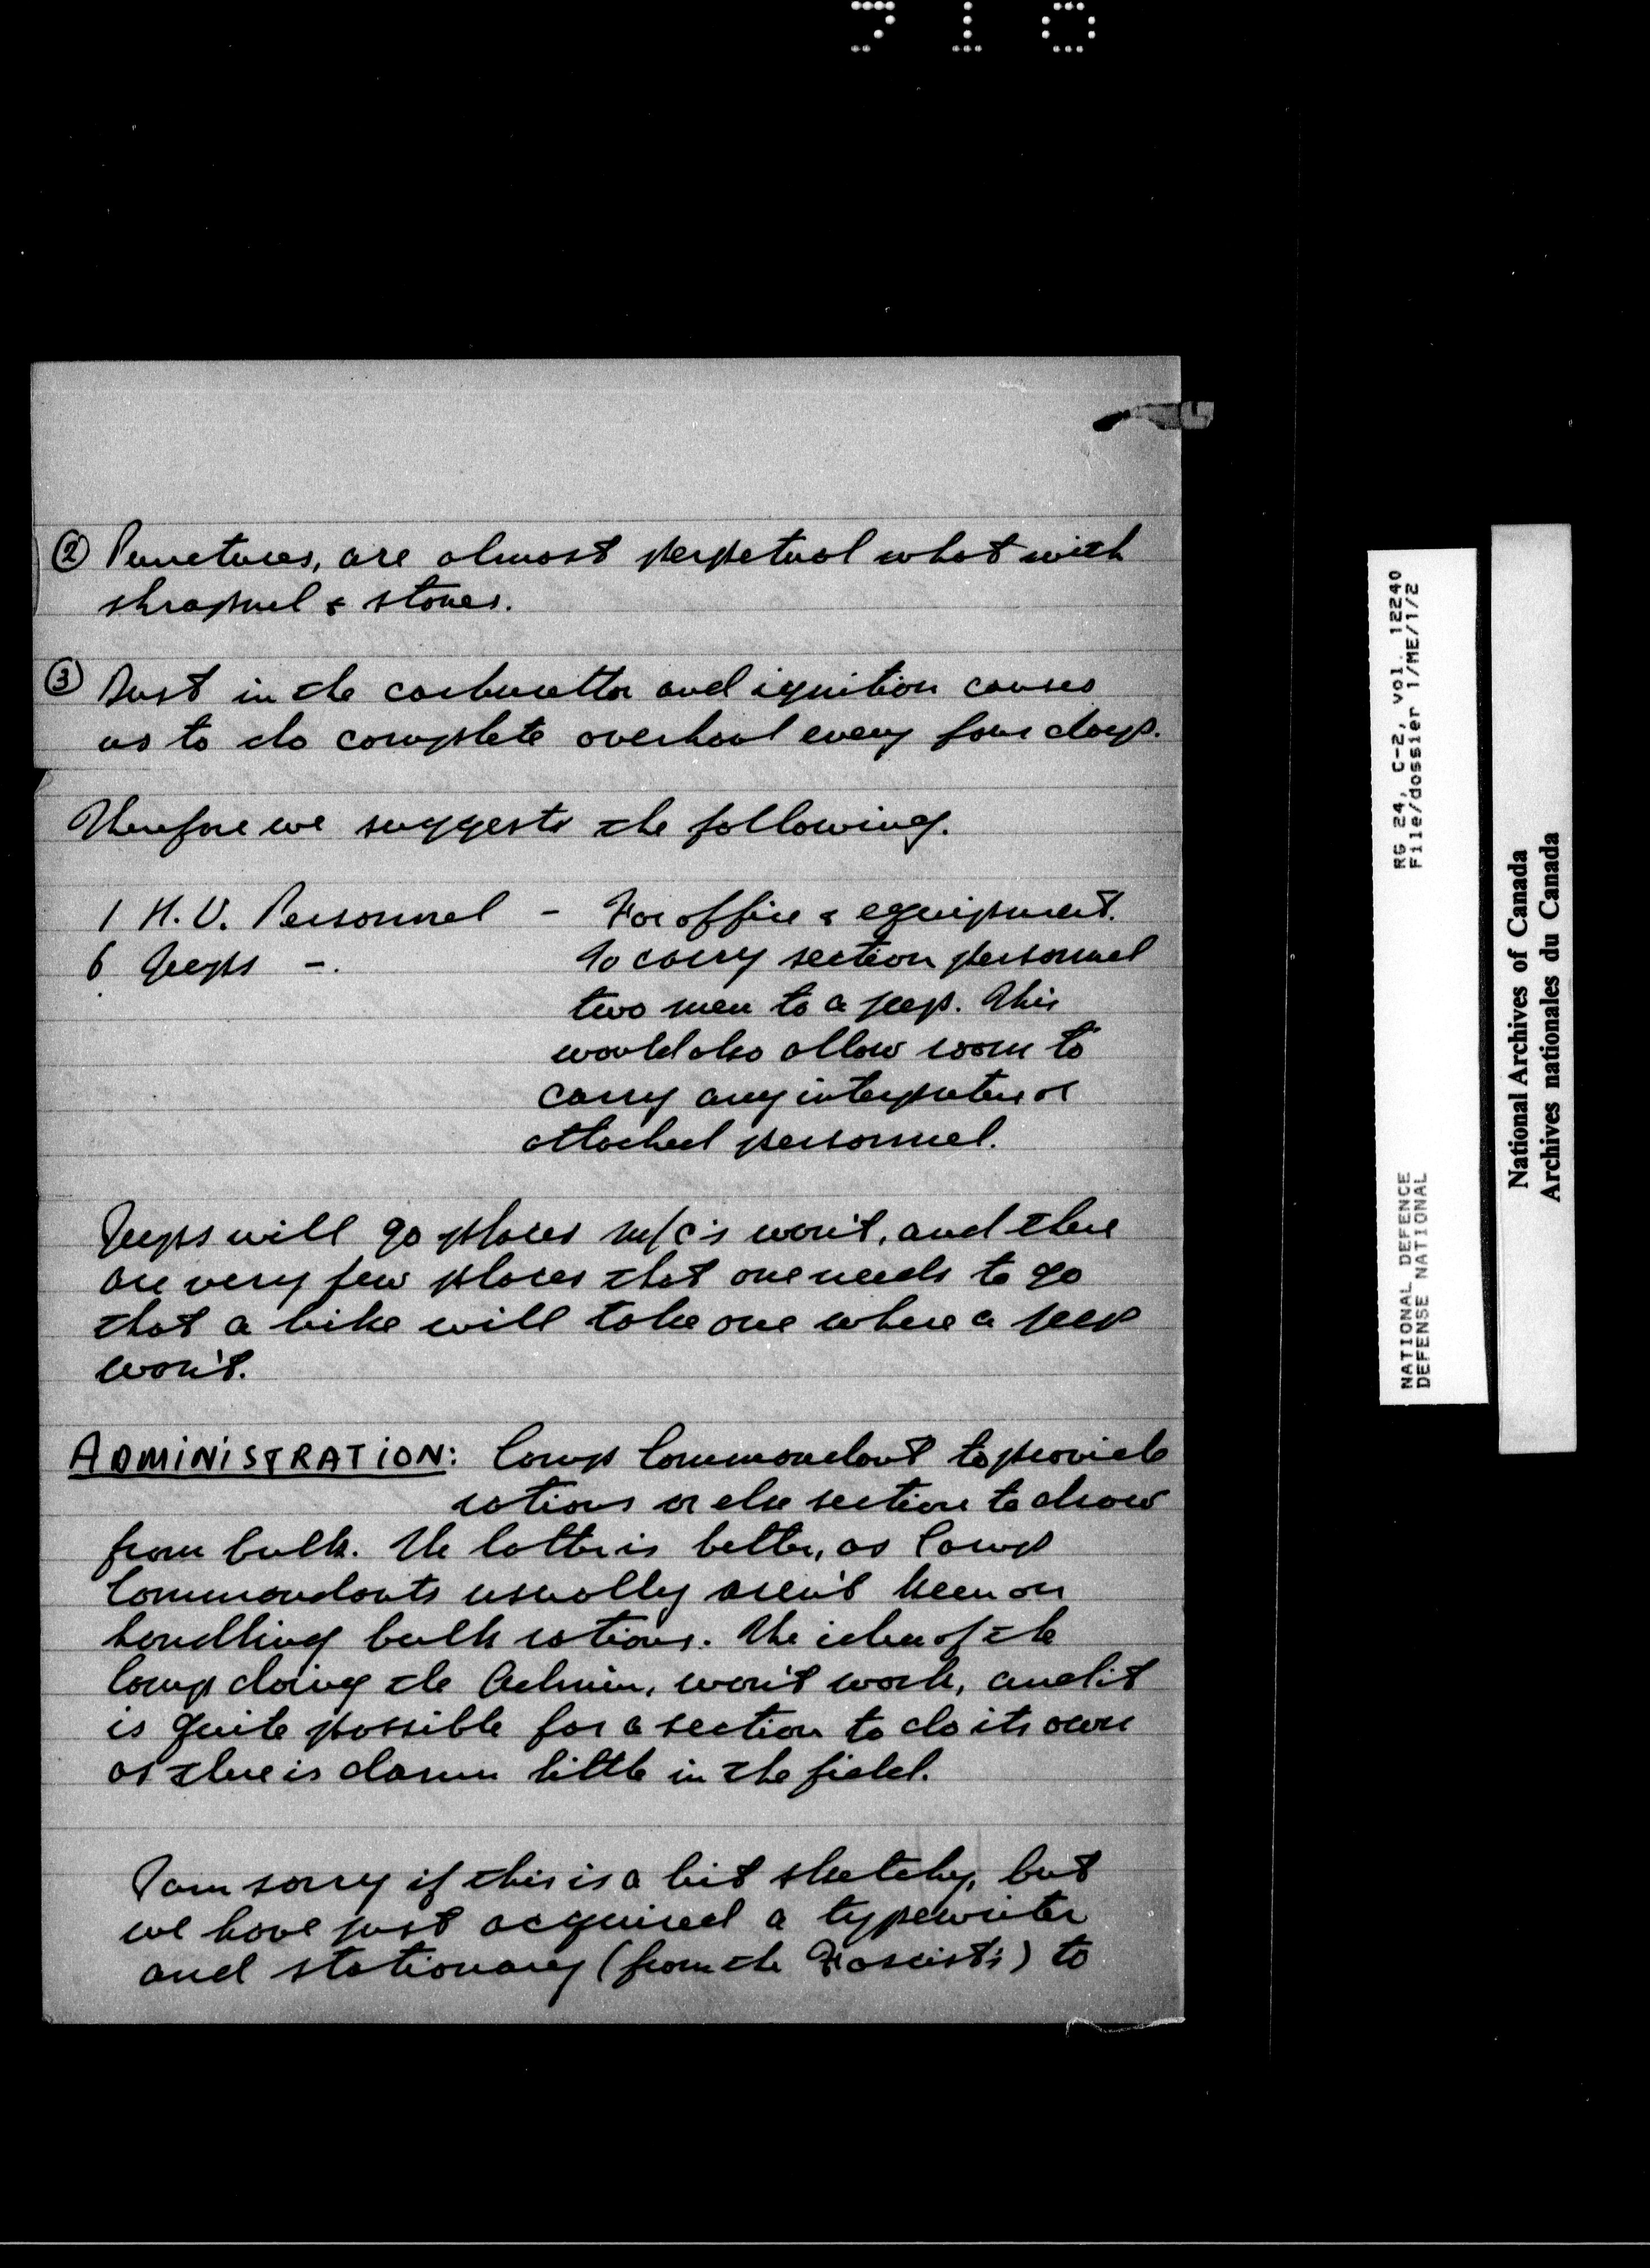 310
② Punctures, are almost perpetual what with
shrapnel & stones.
③ Dust in the carburettor and ignition causes
us to do complete overhaul every four days.
Therefore we suggests the following.
1 H.U. Personnel - For office & equipment.
6 Jeeps -. To carry section personnel
two men to a jeep. This
would also allow room to
carry any interpreters or
attached personnel.
Jeeps will go places m/c's won't, and there
are very few places that one needs to go
that a bike will take one where a jeep
won't.
ADMINISTRATION: Camp Commandant to provide
rations or else section to draw
from bulk. The latter is better, as Camp
Commandants usually aren't keen on
handling bulk rations. The idea of the
Camp doing the Admin, won't work, and it
is quite possible for a section to do its own
as there is damn little in the field.
I am sorry if this is a bit sketchy, but
we have just acquired a typewriter
and stationary (from the Fascist's) to
RG 24, C-2, vol. 12240
File/dossier 1/ME/1/2
NATIONAL DEFENCE
DEFENSE NATIONAL
National Archives of Canada
Archives nationales du Canada